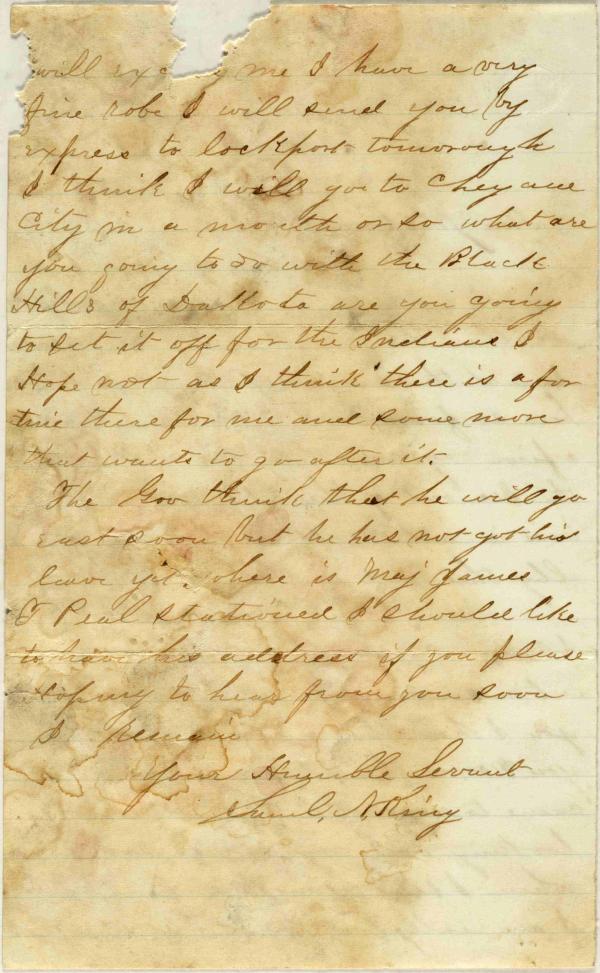 will me I have a very
fine robe I will send you by
express to lockport tomorough
I think I will go to Chey ane
City in a month or so what are
you going to do with the Black
Hills of Dakota are you going
to set it off for the Indians I
Hope not as I think there is a for
tune there for me and some more
that wants to go after it.
The Gov think that he will go
east soon but he has not got his
leave yet. where is Maj James
T Peal stationed I should like
to have his address if you please
Hoping to hear from you soon
I remain
Your Humble Servant
Saml. A. King